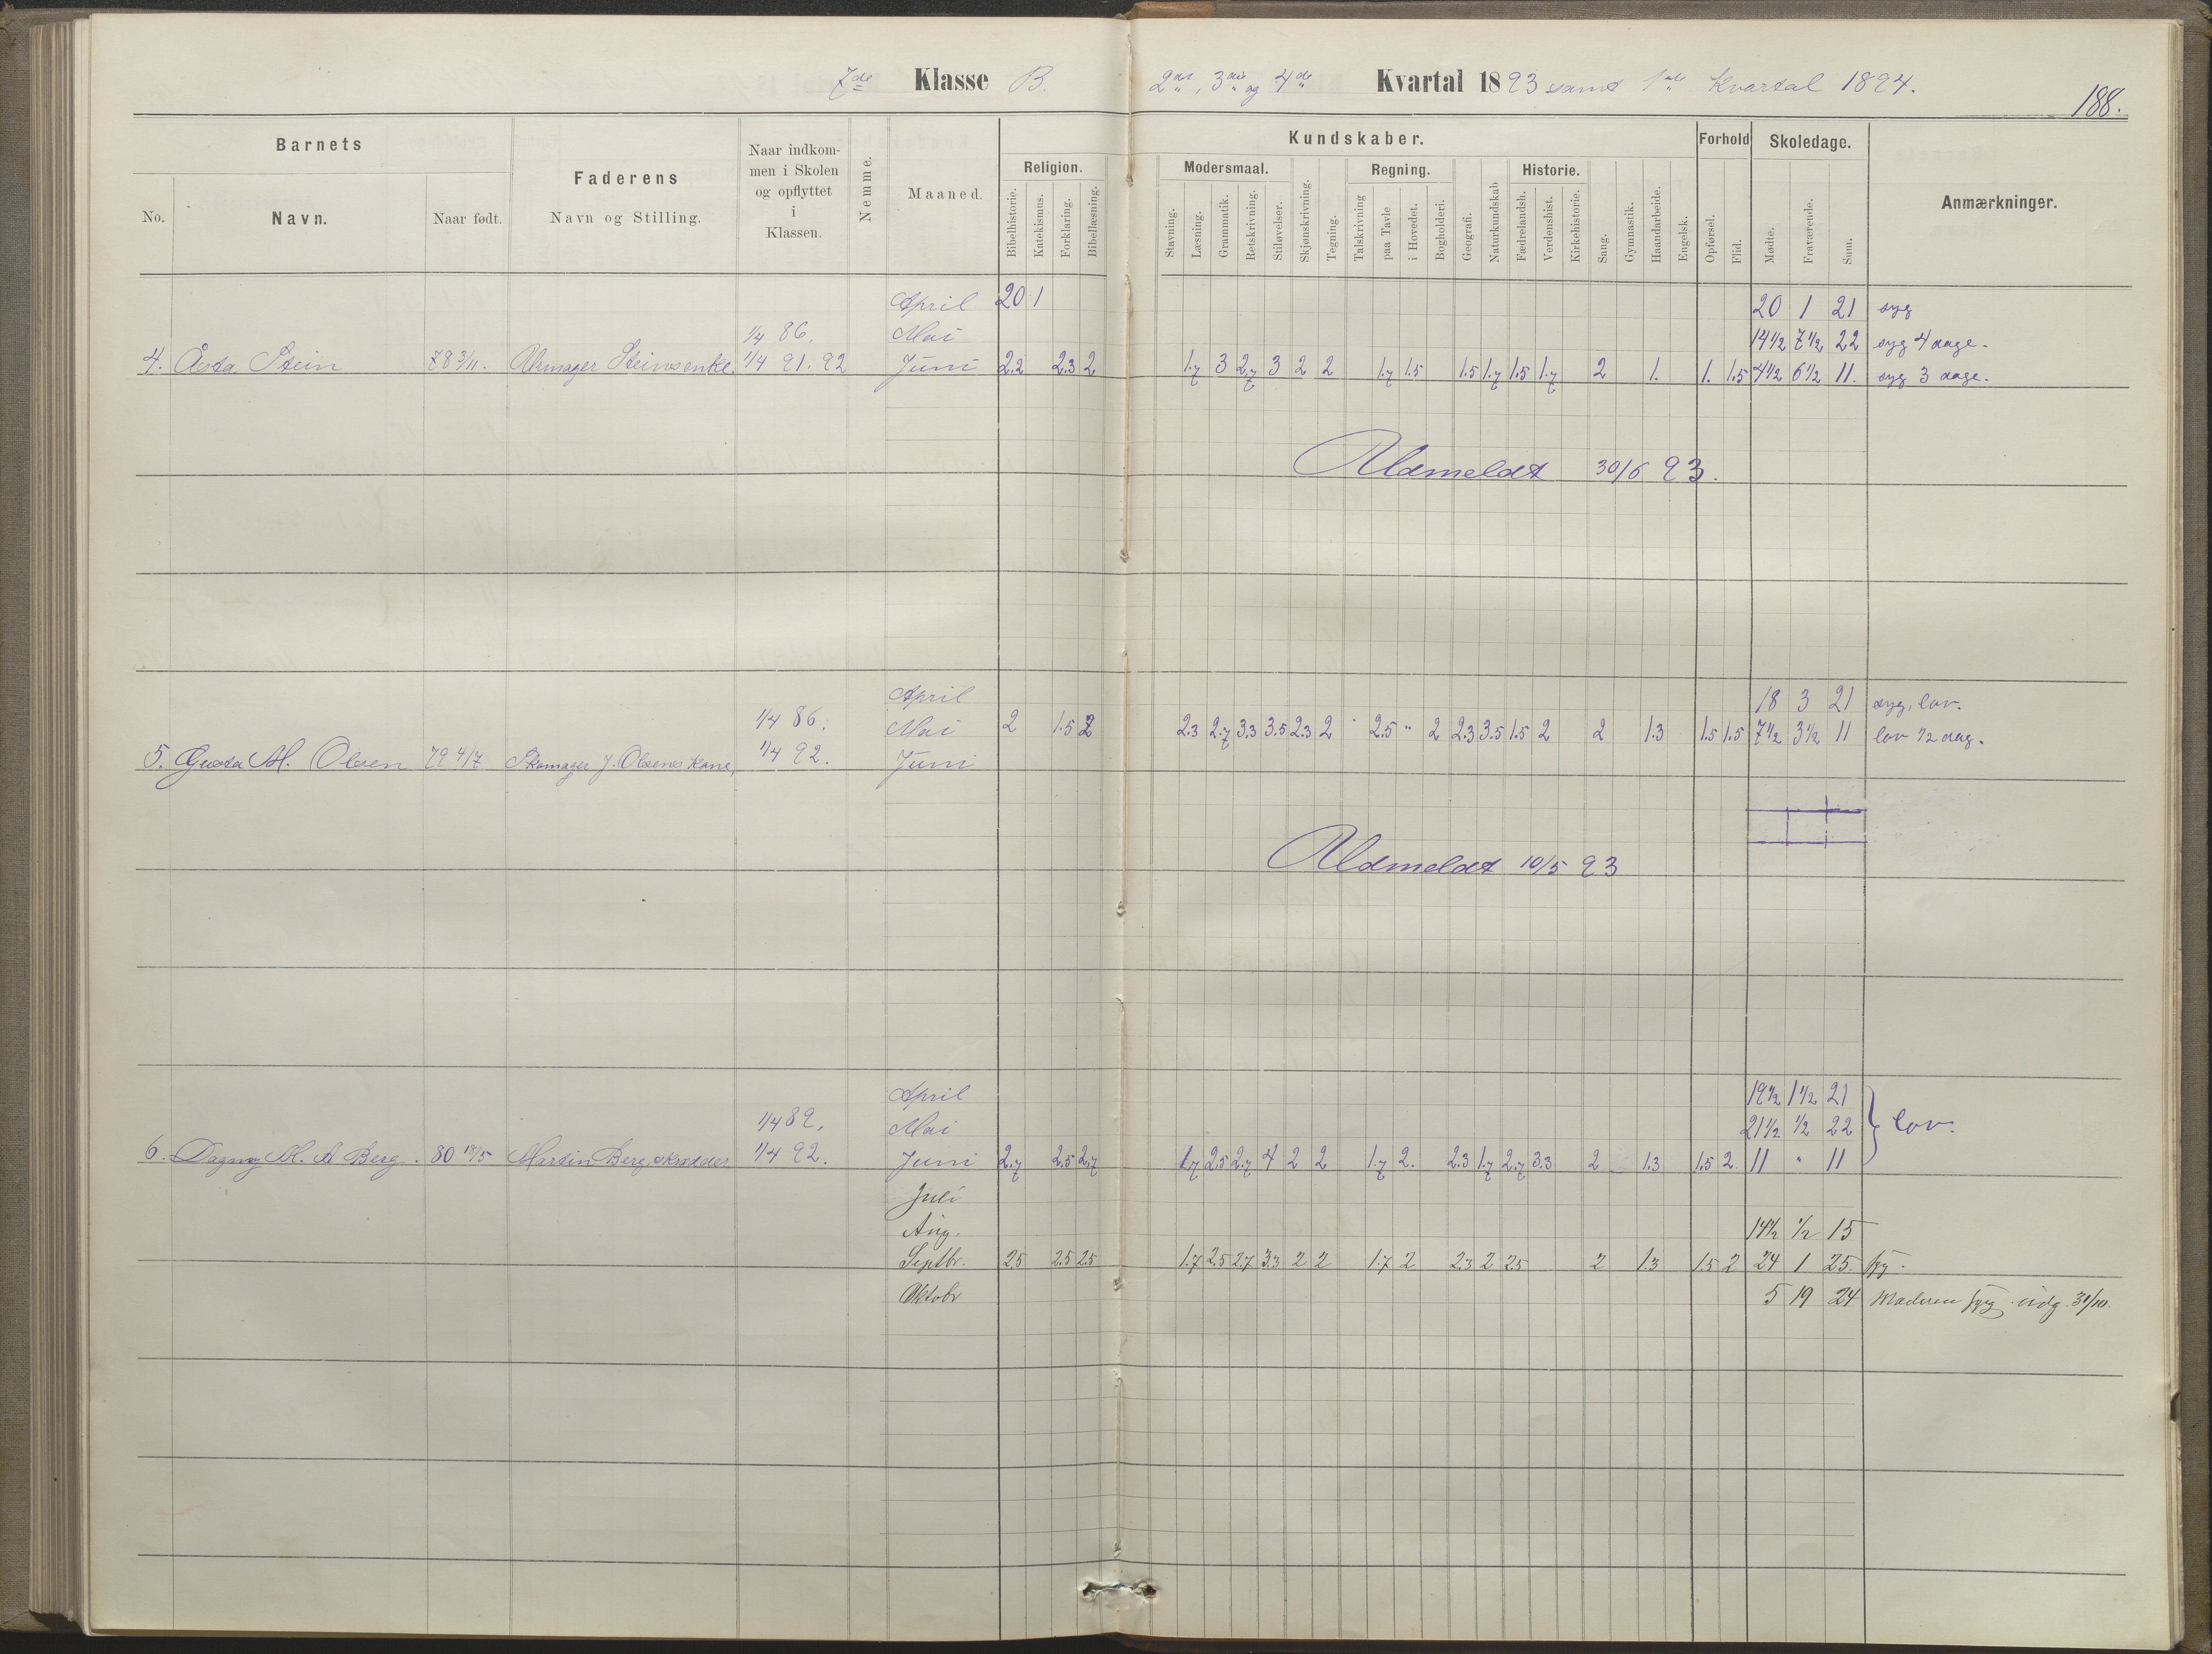 7de Klasse B. 2det, 3die og 4de Kvartal 1893 samt 1ste Kvartal 1894.
188.
Barnets
Faderens
Navn og Stilling.
Naar indkom-
men i Skolen
og opflyttet
i
Klassen.
Nemme.
Maaned.
Kundskaber.
Forhold
Skoledage.
Anmærkninger.
No.
Navn.
Naar født.
Religion.
Modersmaal.
Regning.
Historie.
Bibelhistorie.
Katekismus.
Forklaring.
Bibellæsning.
Stavning.
Læsning.
Grammatik.
Retskrivning.
Stiløvelser.
Skjønskrivning.
Tegning.
Talskrivning
paa Tavle
i Hovedet.
Bogholderi.
Geografi.
Naturkundskab
Fædrelandsh.
Verdenshist.
Kirkehistorie.
Sang.
Gymnastik.
Haandarbeide.
Engelsk.
Opførsel.
Flid.
Mødte.
Fraværende.
Sum.
April 20 1 20 1 21 syg
1/4 86. Mai 14 1/2 7 1/2 22 syg 4 dage.
4. Åsta Stein 78 3/11. Uhrmager Steins enke. 1/4 91. 92 Juni 2.2 2.3 2 1.7 3 2.7 3 2 2 1.7 1.5 1.5 1.7 1.5 1.7 2 1. 1. 1.5 4 1/2 6 1/2 11. syg 3 dage.
Udmeldt 30/6 93.
April 18 3 21 syg, lov.
1/4 86. Mai 2 1.5 2 2.3 2.7 3.3 3.5 2.3 2 2.5 " 2 2.3 3.5 1.5 2 2 1.3 1.5 1.5 7 1/2 3 1/2 11 lov 1/2 dag.
5. Gusta M. Olsen 79 4/7 Skomager J. Olsens Kone, 1/4 92. Juni
Udmeldt 10/5 93
April 19 1/2 1 1/2 21
1/4 89. Mai 21 1/2 1/2 22 lov.
6. Dagny M. A Berg. 80 18/5 Martin Berg, skrædder 1/4 92. Juni 2.7 2.5 2.7 1.7 2.5 2.7 4 2 2 1.7 2. 2.3 1.7 2.7 3.3 2 1.3 1.5 2 11 " 11
Juli
Aug. 14 1/2 1/2 15
Septbr. 2.5 2.5 2.5 1.7 2.5 2.7 3.3 2 2 1.7 2 2.3 2 2.5 2 1.3 1.5 2 24 1 25. syg.
Oktobr 5 19 24 Moderen syg. udg. 31/10.